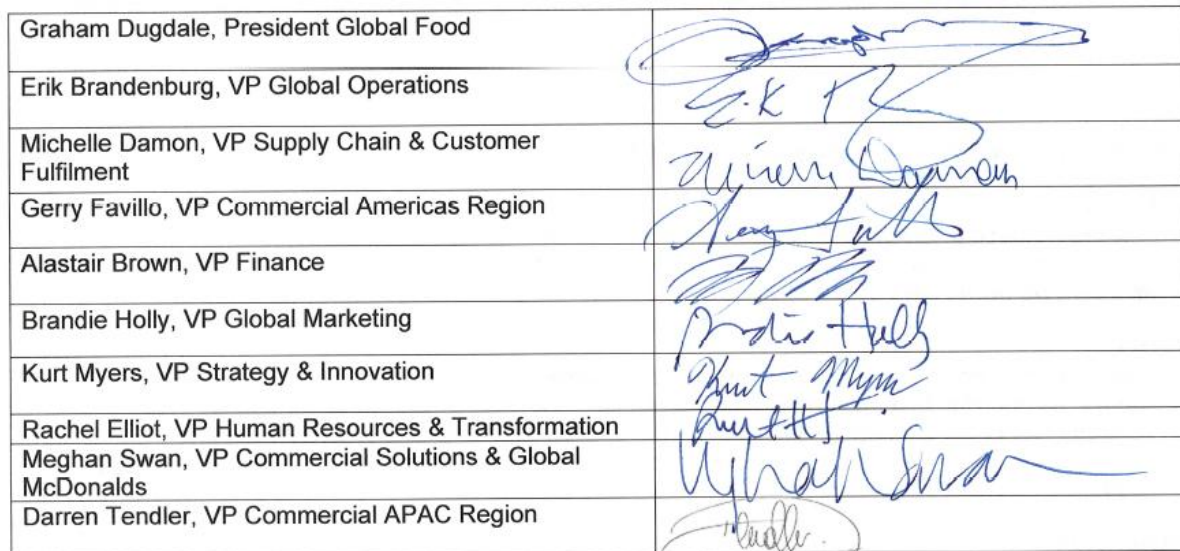 Graham Dugdale, President Global Food
Erik Brandenburg, VP Global Operations
Michelle Damon, VP Supply Chain & Customer
Fulfilment
Gerry Favillo, VP Commercial Americas Region
Alastair Brown, VP Finance
Brandie Holly, VP Global Marketing
Kurt Myers, VP Strategy & Innovation
Kurt Myers
Rachel Elliot, VP Human Resources & Transformation
Meghan Swan, VP Commercial Solutions & Global
McDonalds
Darren Tendler, VP Commercial APAC Region